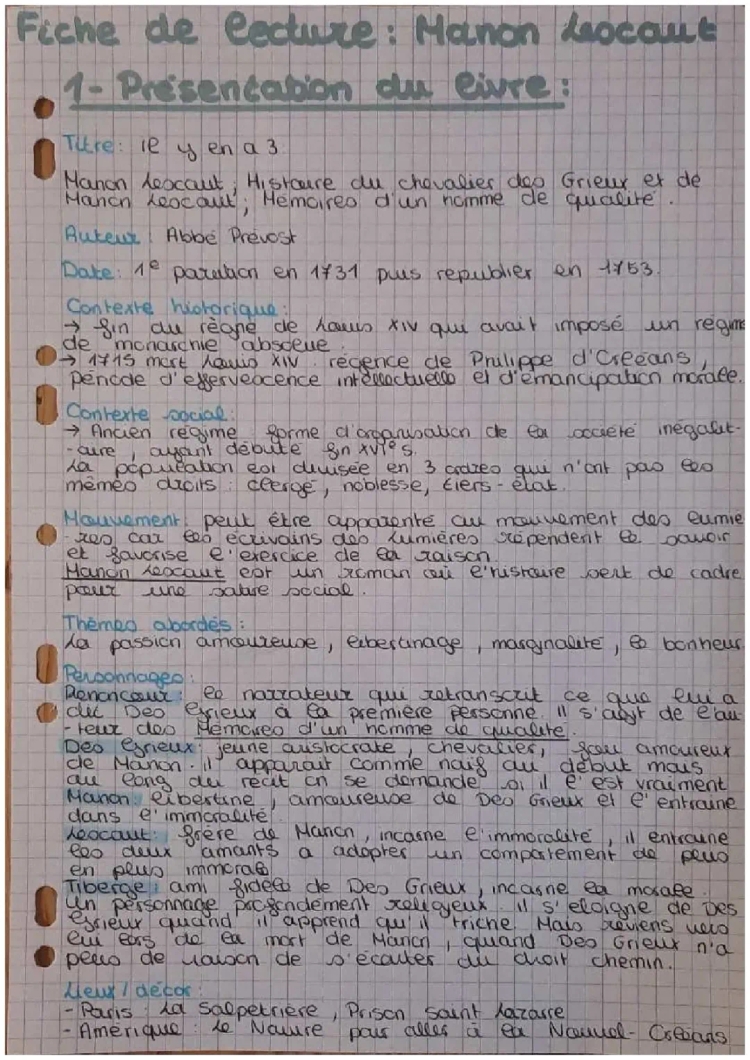 Fiche de lecture : Manon Lescaut
1- Présentation du livre :
Titre : il y en a 3
Manon Lescaut ; Histoire du chevalier des Grieux et de
Manon Lescaut ; Mémoires d'un homme de qualité.
Auteur : Abbé Prévost
Date : 1e parution en 1731 puis republier en 1753.
Contexte historique :
→ fin du règne de Louis XIV qui avait imposé un régime
de monarchie absolue.
→ 1715 mort Louis XIV. régence de Philippe d'Orléans,
période d'effervescence intellectuelle et d'émancipation morale.
Contexte social :
→ Ancien régime : forme d'organisation de la société inégalit-
-aire, ayant débuté fin XVIe s.
La population est divisée en 3 ordres qui n'ont pas les
mêmes droits : clergé, noblesse, tiers-état.
Mouvement : peut être apparenté au mouvement des lumiè
-res car les écrivains des Lumières répendent le savoir
et favorise l'exercice de la raison.
Manon Lescaut est un roman où l'histoire sert de cadre
pour une satire social.
Thèmes abordés :
La passion amoureuse, libertinage, marginalité, le bonheur
Personnages :
Renoncour : le narrateur qui retranscrit ce que lui a
dit Des Grieux à la première personne. Il s'agit de l'au-
-teur des Mémoires d'un homme de qualité.
Des Grieux : jeune aristocrate, chevalier, fou amoureux
de Manon. il apparait comme naïf au début mais
au long du récit on se demande si il l'est vraiment
Manon : libertine, amoureuse de Des Grieux et l'entraine
dans l'immoralité
Lescaut : frère de Manon, incarne l'immoralité, il entraine
les deux amants a adopter un comportement de plus
en plus immorale
Tiberge : ami fidèle de Des Grieux, incarne la morale.
Un personnage profondément religieux. il s'eloigne de Des
Grieux quand il apprend qu'il triche. Mais reviens vers
lui lors de la mort de Manon, quand Des Grieux n'a
plus de raison de s'écarter du droit chemin.
Lieux / décor :
- Paris : La Salpetrière, Prison Saint Lazarre
- Amérique : Le Navire pour aller à la Nouvel-Orléans